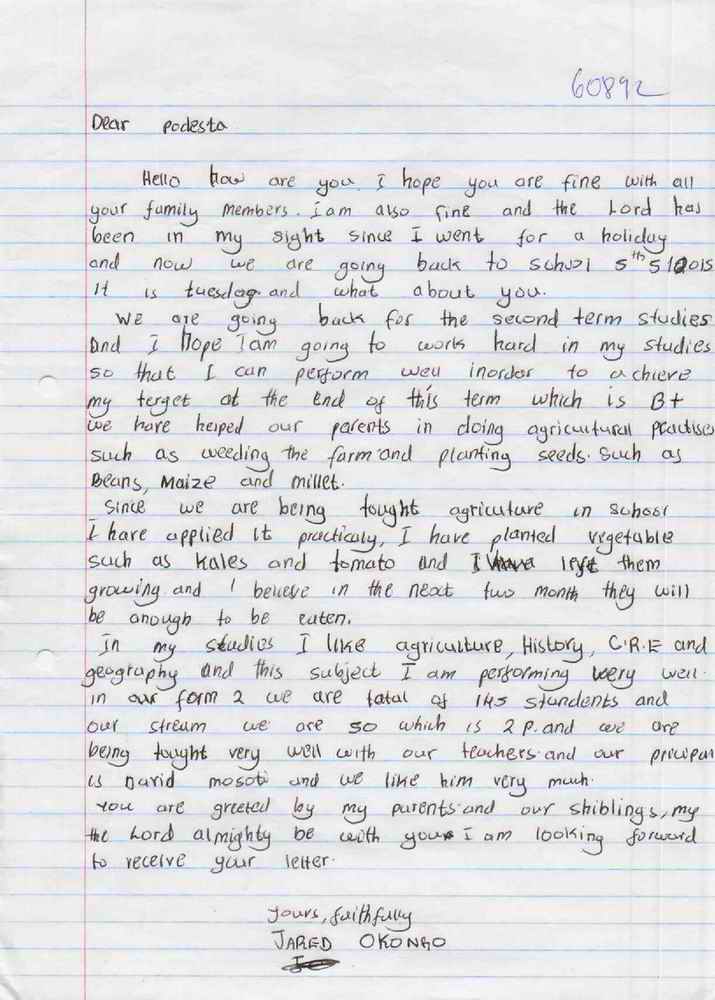 60892
Dear podesta
Hello how are you. I hope you are fine with all
your family members. I am also fine and the Lord has
been in my sight since I went for a holiday
and now we are going back to school 5th 5 12015
It is tuesday. and what about you.
We are going back for the second term studies
And I Hope I am going to work hard in my studies
so that I can perform well inorder to achieve
my terget at the End of this term which is B+
We have helped our parents in doing agricultural practises
such as weeding the farm and planting seeds. Such as
Beans, Maize and millet.
Since we are being tought agriculture in school
I have applied it practicaly, I have planted vegetable
such as kales and tomato and I left them
growing. and I believe in the next two month they will
be enough to be eaten.
In my studies I like agriculture, History, C.R.E and
geography and this subject I am performing very well.
in our form 2 we are total of 145 standents and
our stream we are 50 which is 2 P. and we are
being tought very well with our teachers. and our principal
is David mosoti and we like him very much.
You are greeted by my parents and our shiblings, my
the Lord almighty be with you. I am looking forward
to receive your letter.
Yours, faithfully
JARED OKONGO